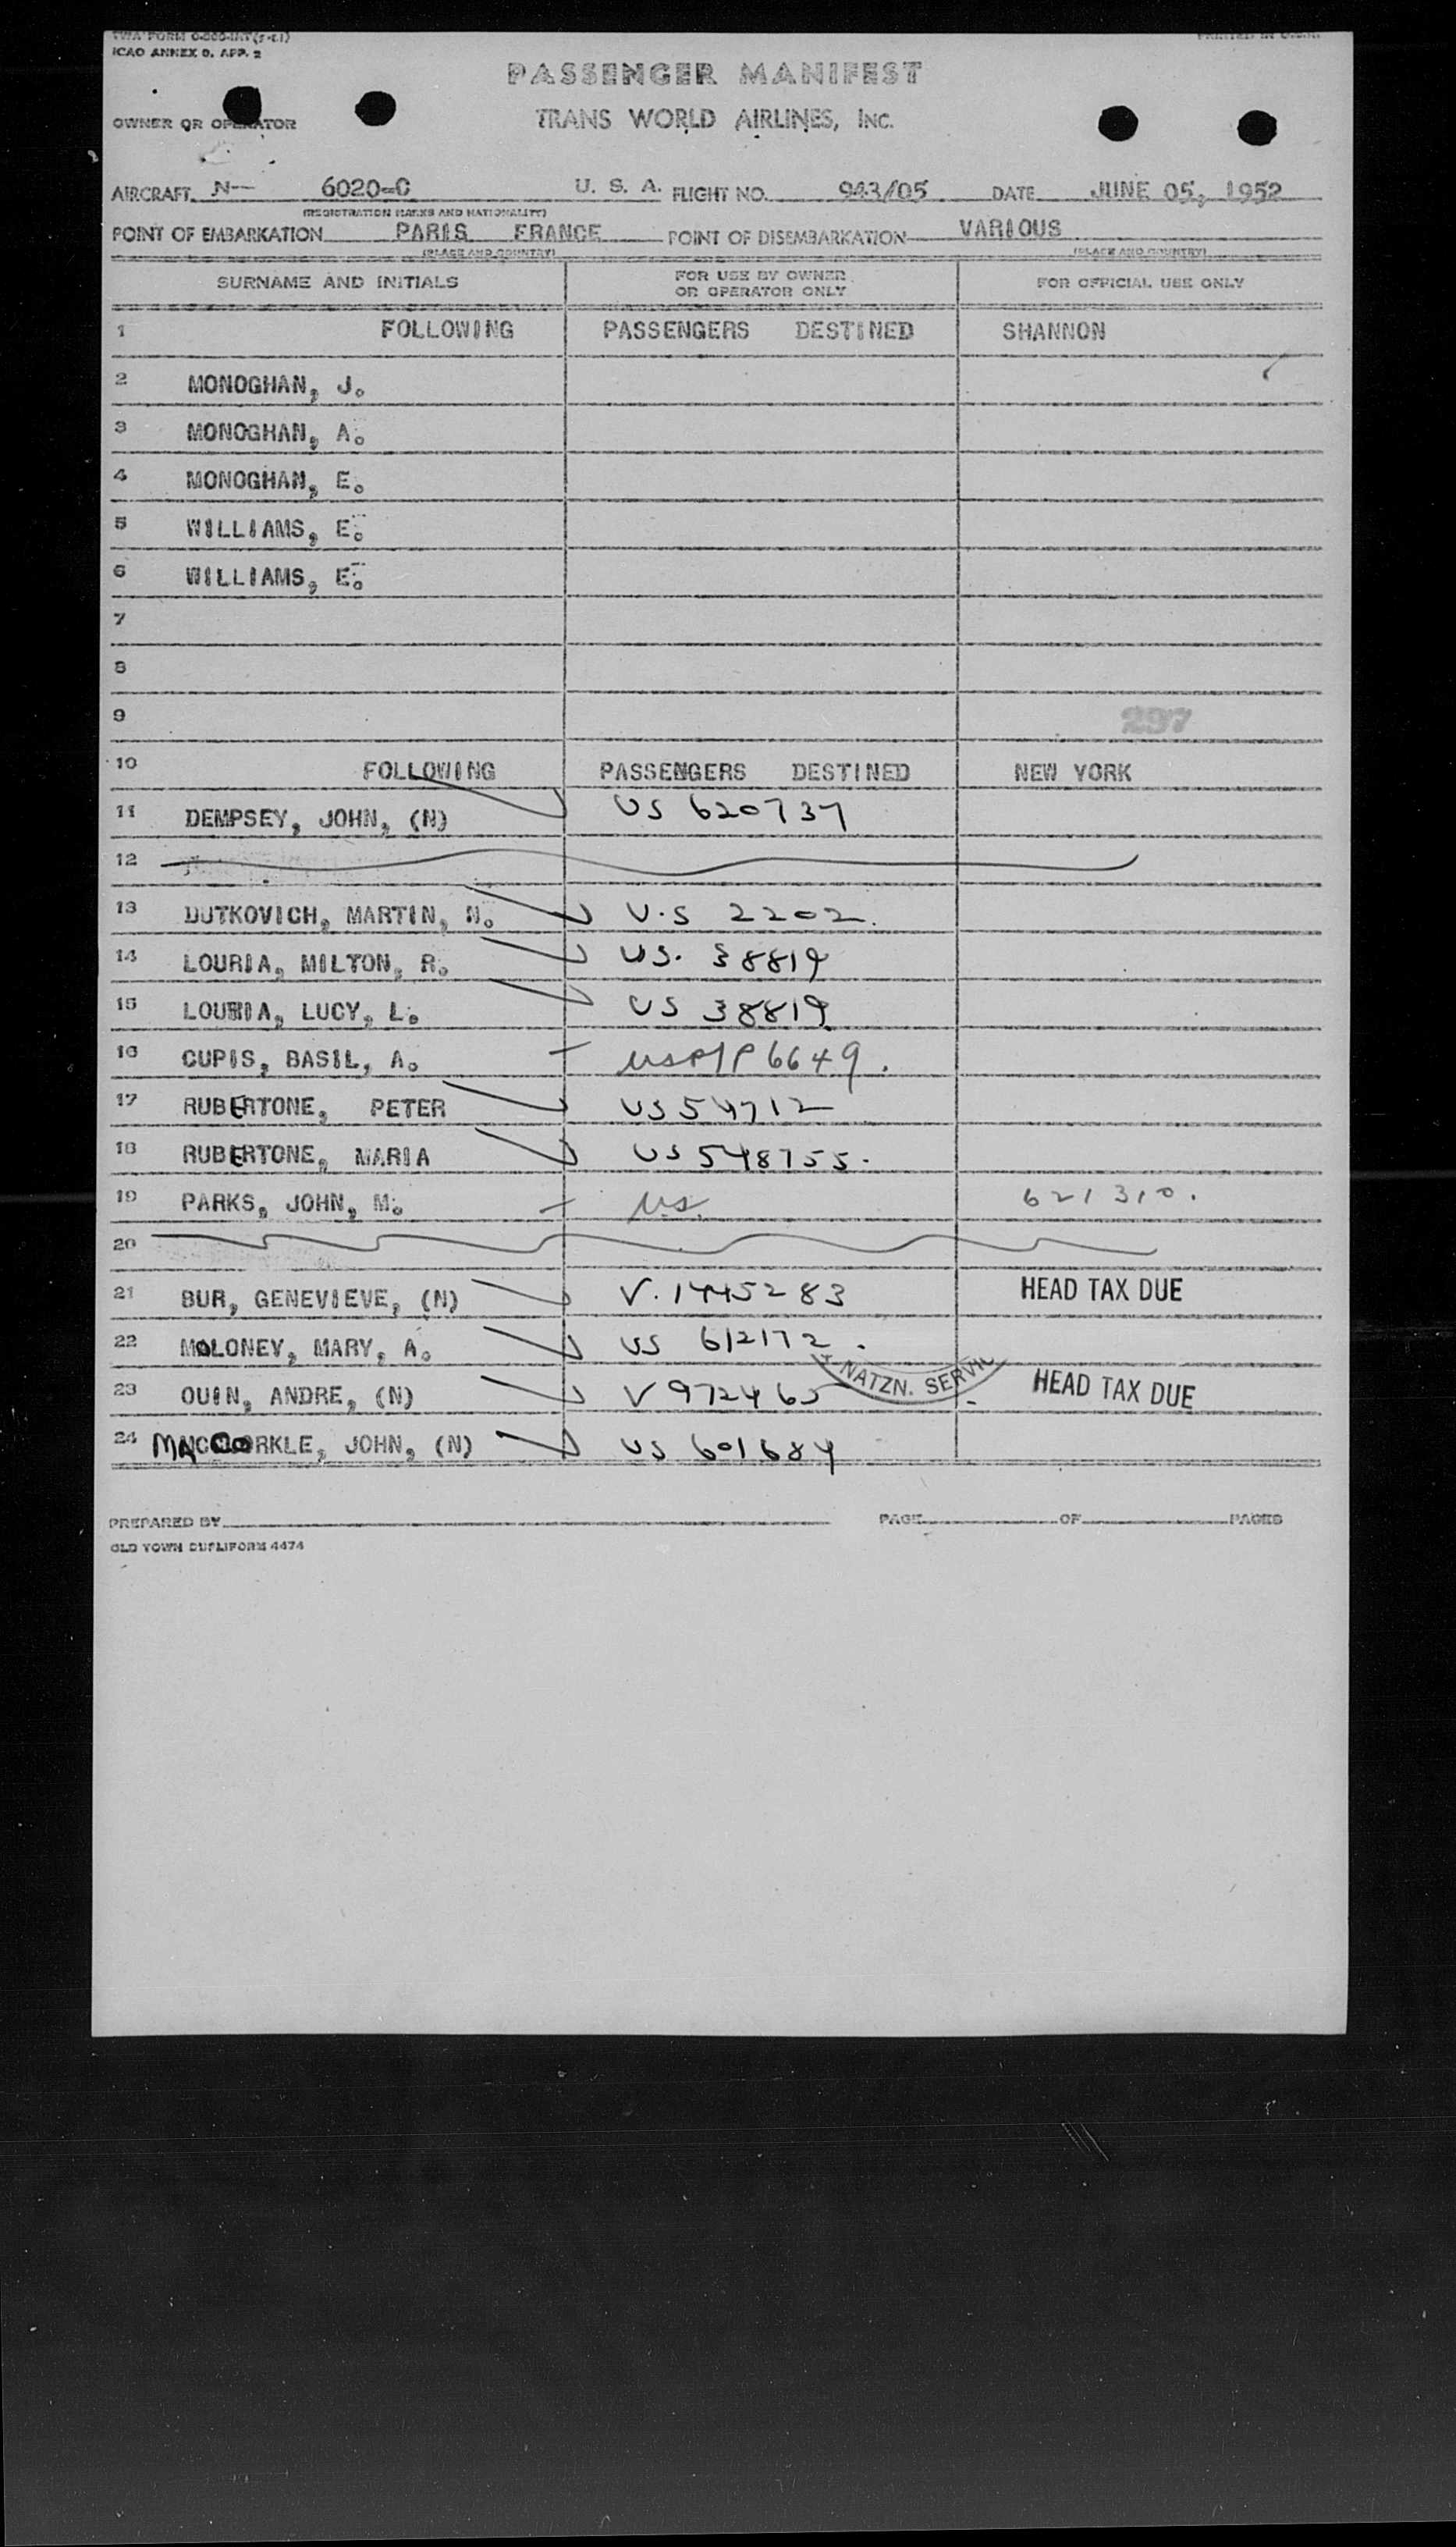 TWA FORM
ICAO ANNEX 9, APP. 2
PRINTED IN U.S.A.
PASSENGER MANIFEST
OWNER OR OPERATOR TRANS WORLD AIRLINES, INC.
AIRCRAFT N-- 6020-C U. S. A. FLIGHT NO. 943/05 DATE JUNE 05, 1952
(REGISTRATION MARKS AND NATIONALITY)
POINT OF EMBARKATION PARIS FRANCE POINT OF DISEMBARKATION VARIOUS
(PLACE AND COUNTRY) (PLACE AND COUNTRY)
SURNAME AND INITIALS FOR USE BY OWNER OR OPERATOR ONLY FOR OFFICIAL USE ONLY
1 FOLLOWING PASSENGERS DESTINED SHANNON
2 MONOGHAN, J.
3 MONOGHAN, A.
4 MONOGHAN, E.
5 WILLIAMS, E.
6 WILLIAMS, E.
7
8
9 297
10 FOLLOWING PASSENGERS DESTINED NEW YORK
11 DEMPSEY, JOHN, (N) US 620737
12
13 DUTKOVICH, MARTIN, N. U.S 2202.
14 LOURIA, MILTON, R. US. 38819
15 LOURIA, LUCY, L. US 38819
16 CUPIS, BASIL, A. USPIP 6649.
17 RUBERTONE, PETER US 54712
18 RUBERTONE, MARIA US 548755.
19 PARKS, JOHN, M. US. 621310.
20
21 BUR, GENEVIEVE, (N) V. 1445283 HEAD TAX DUE
22 MOLONEY, MARY, A. US 612172.
23 OUIN, ANDRE, (N) V 972465 NATZN. SERVIC HEAD TAX DUE
24 MACCORKLE, JOHN, (N) US 601684
PREPARED BY PAGE OF PAGES
OLD TOWN DUPLIFORM 4474